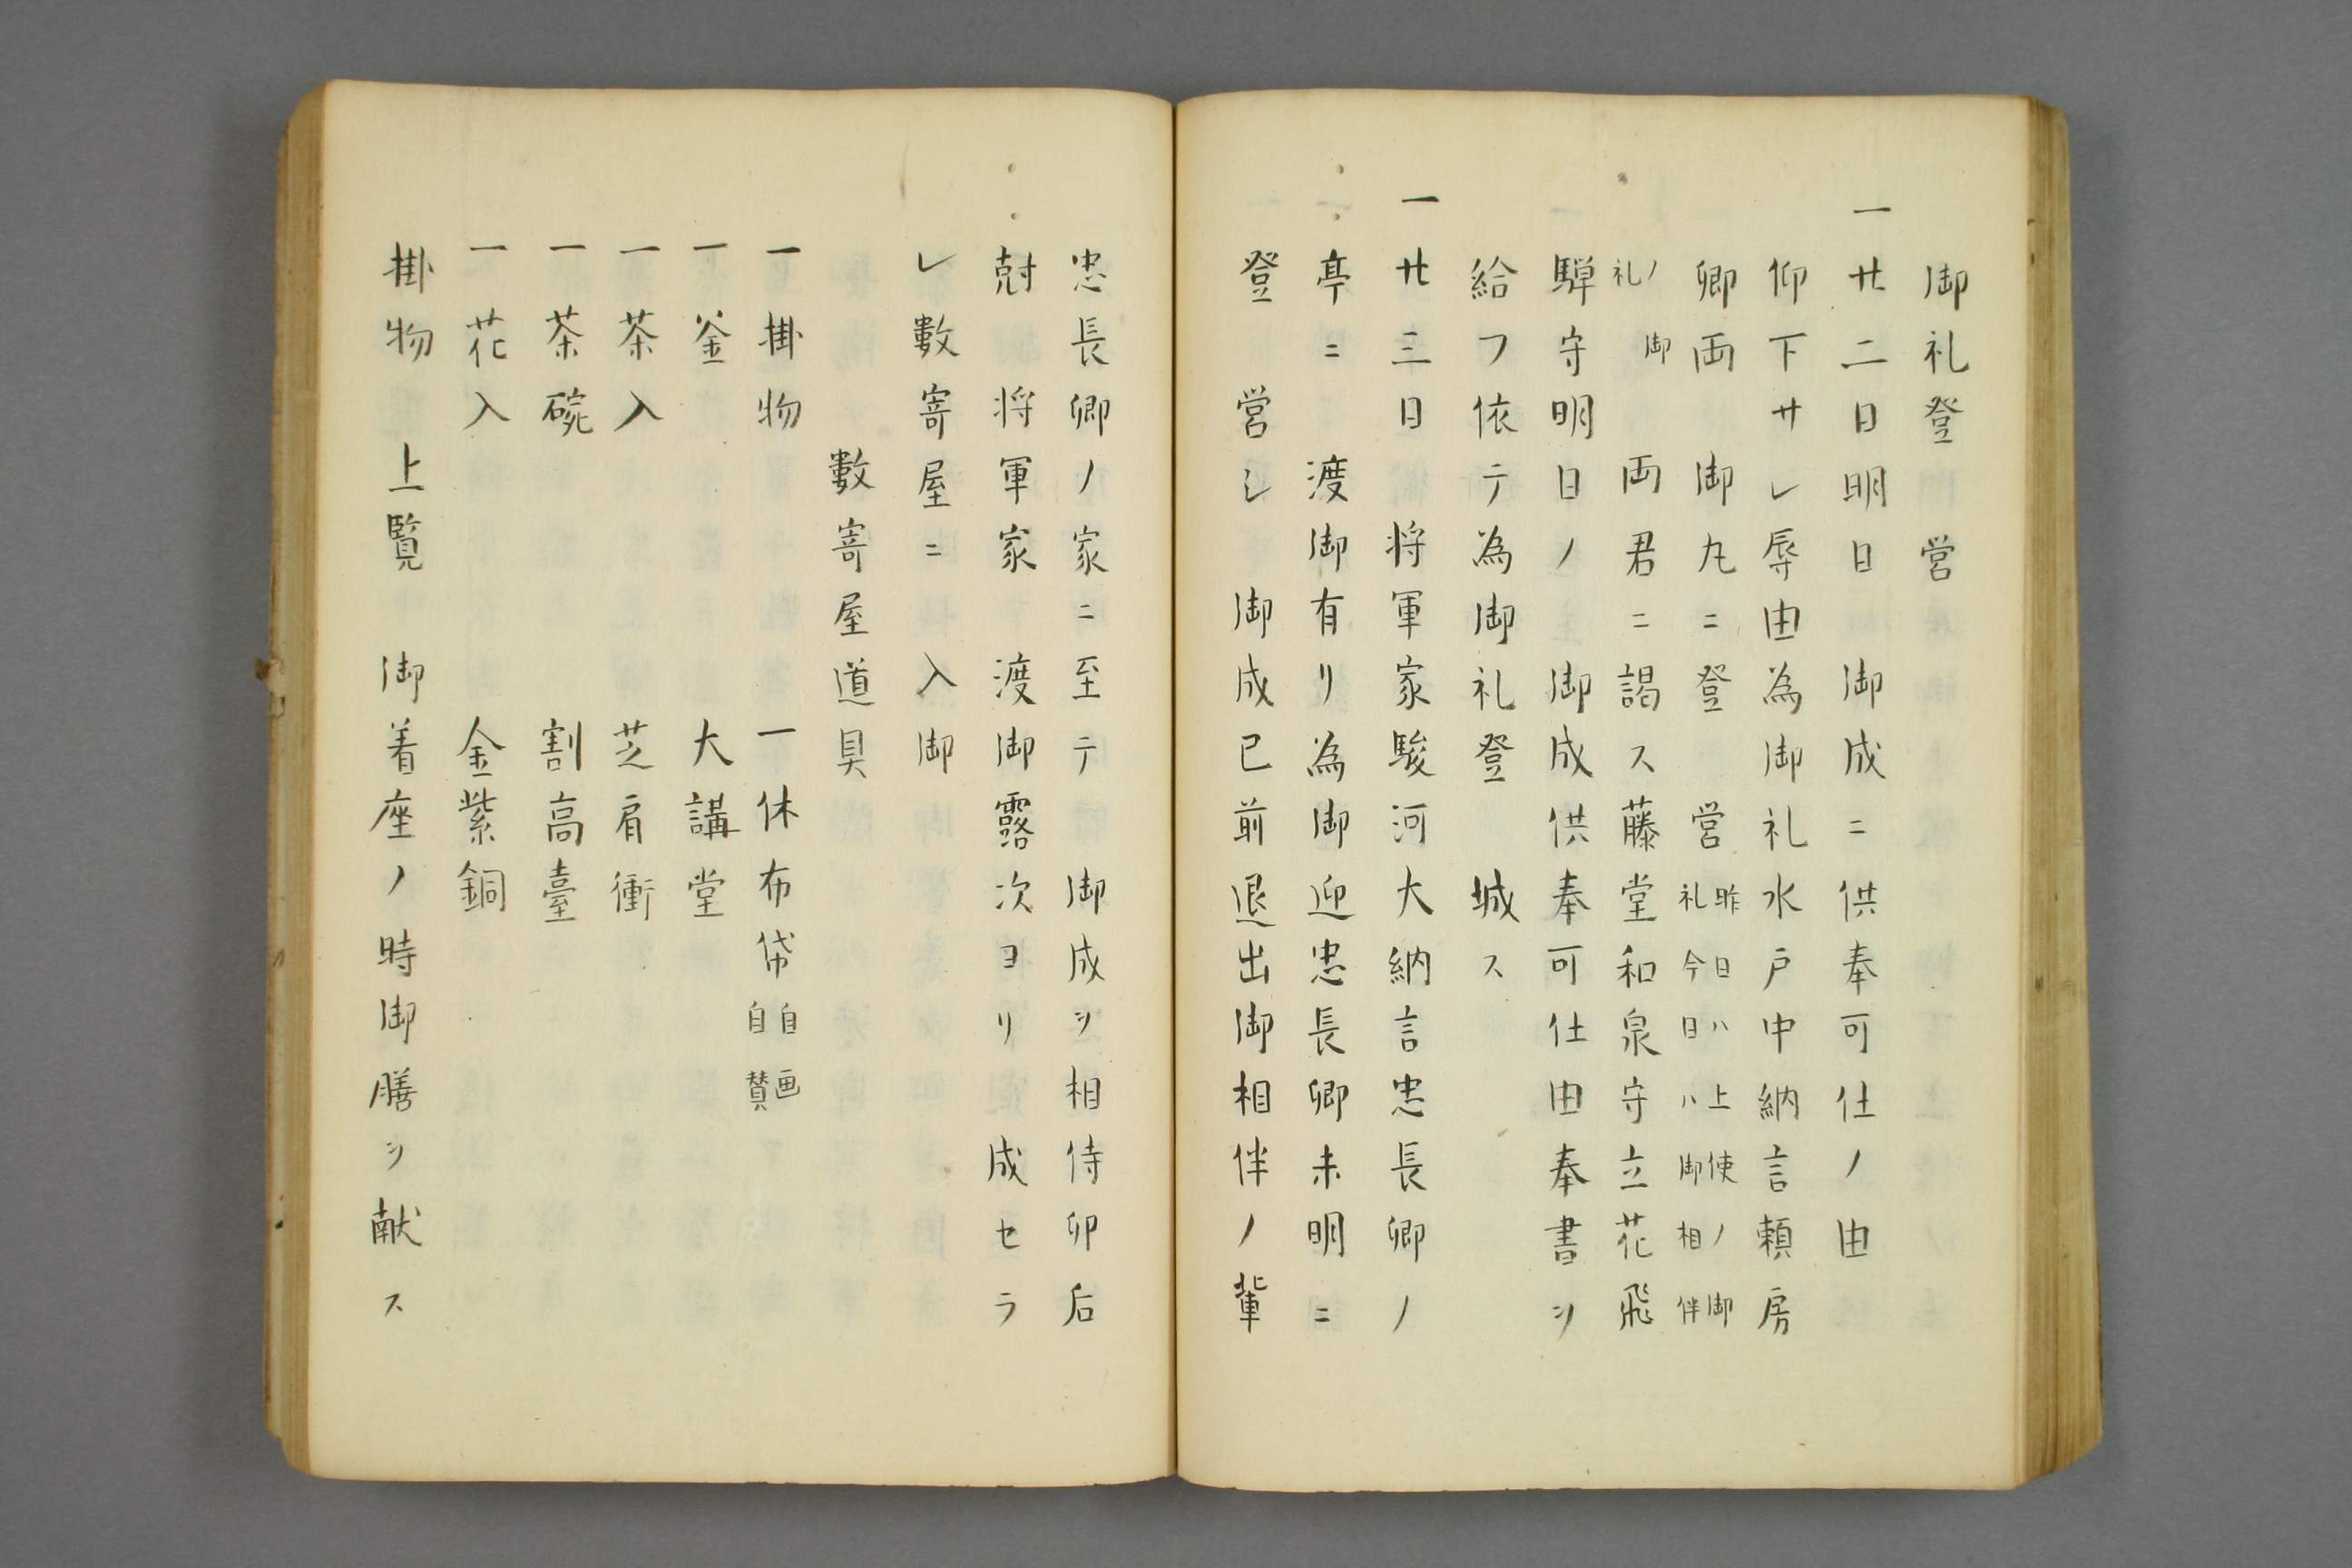 御礼登　営
一廿二日明日　御成ニ供奉可仕ノ由
仰下サレ辱由為御礼水戸中納言頼房
卿両　御丸ニ登　営昨日ハ上使ノ御
礼今日ハ御相伴
ノ御
礼
両君ニ謁ス藤堂和泉守立花飛
騨守明日ノ　御成供奉可仕由奉書ヲ
給フ依テ為御礼登　城ス
一廿三日　将軍家駿河大納言忠長卿ノ
亭ニ　渡御有リ為御迎忠長卿未明ニ
登　営シ　御成已前退出御相伴ノ輩
忠長卿ノ家ニ至テ　御成ヲ相待卯后
尅　将軍家　渡御露次ヨリ　成セラ
レ數寄屋ニ　入御
數寄屋道具
一掛物　一休布袋自画
自賛
一釜　大講堂
一茶入　芝肩衝
一茶碗　割高臺
一花入　金紫銅
掛物　上覧　御着座ノ時御膳ヲ献ス